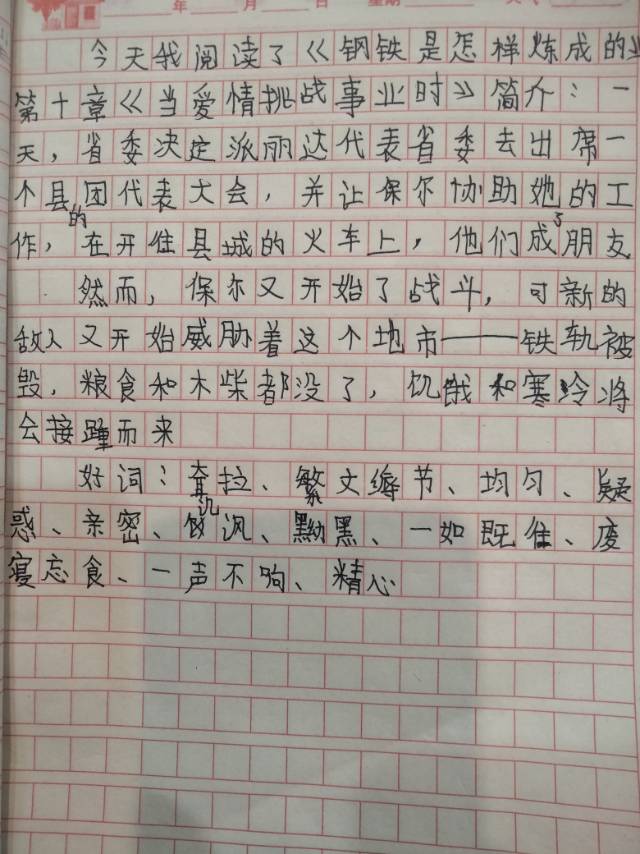 年 月 日 星期 天气
今天我阅读了《钢铁是怎样炼成的》
第十章《当爱情挑战事业时》简介：一
天，省委决定派丽达代表省委去出席一
个县的团代表大会，并让保尔协助她的工
作，在开往县城的火车上，他们成了朋友
然而，保尔又开始了战斗，可新的
敌人又开始威胁着这个地市——铁轨被
毁，粮食和木柴都没了，饥饿和寒冷将
会接踵而来
好词：耷拉、繁文缛节、均匀、疑
惑、亲密、沉、黝黑、一如既往、废
寝忘食、一声不响、精心